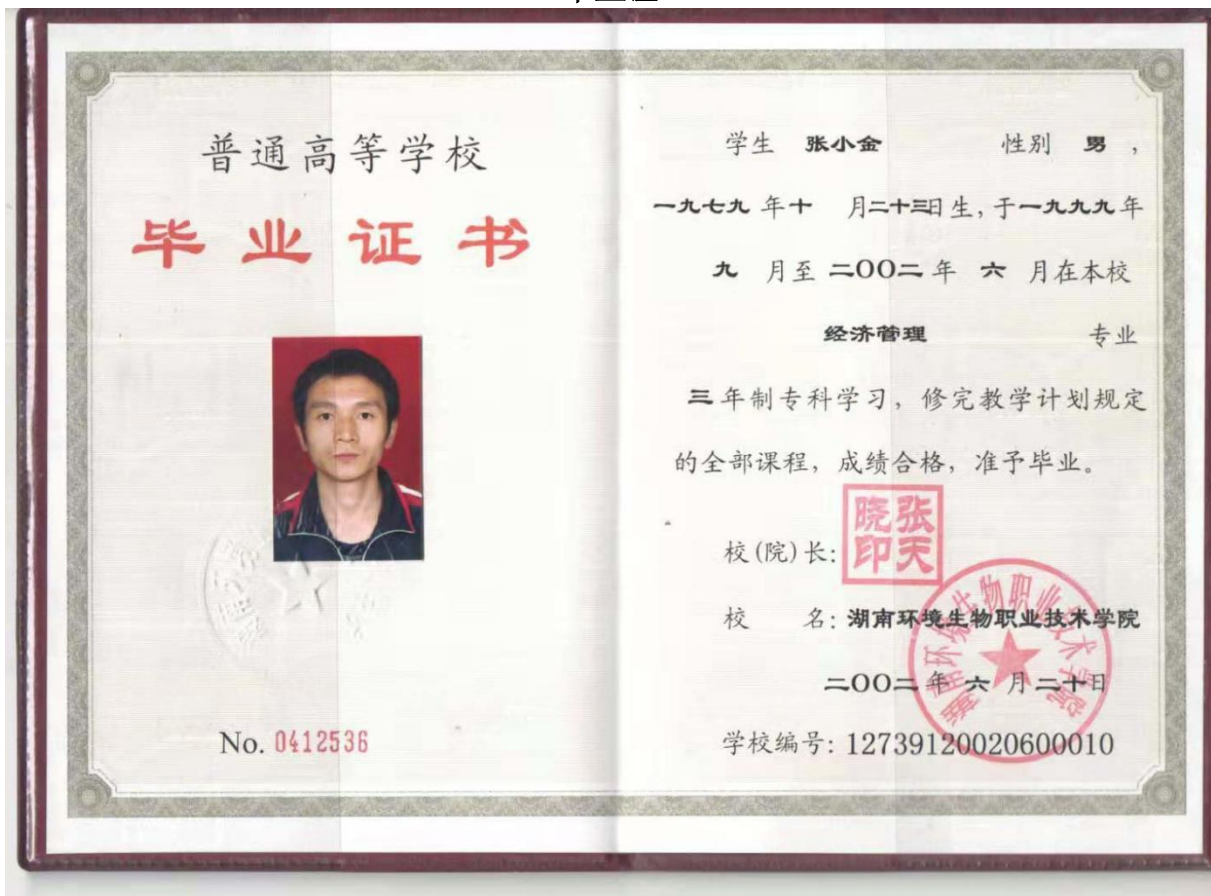 普通高等学校
毕业证书
No. 0412536
学生 张小金 性别 男 ,
一九七九 年十 月二十三日生, 于一九九九年
九 月至 二〇〇二 年 六 月在本校
经济管理 专业
三年制专科学习, 修完教学计划规定
的全部课程, 成绩合格, 准予毕业。
校(院)长:
张天晓印
校 名: 湖南环境生物职业技术学院
湖南环境生物职业技术学院
二〇〇二 年 六 月二十日
学校编号: 12739120020600010